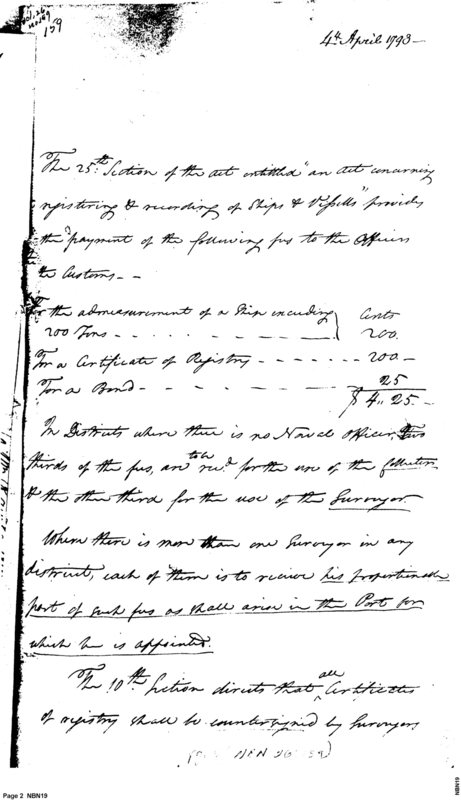 159
4th April 1793 —
The 25th Section of the act entitled "an act concerning
registering & recording of Ships & Vessells" provides
the payment of the following fees to the Officers
the Customs — —
For the admeasurement of a Ship exceeding } Cents
200 Tons - - - - - - - - 200.
For a Certificate of Registry - - - - - 200 —
For a Bond - - - - - - - 25
$ 4.. 25. —
In Districts where there is no Naval Officer, two
thirds of the fees, are to be recd. for the use of the Collectors
& the other third for the use of the Surveyor
Where there is more than one Surveyor in any
district, each of them is to receive his proportionable
part of such fees as shall arise in the Port for
which he is appointed.
The 10th Section directs that all Certificates
of registry shall be countersigned by Surveyors
Page 2 NBN19
NBN19